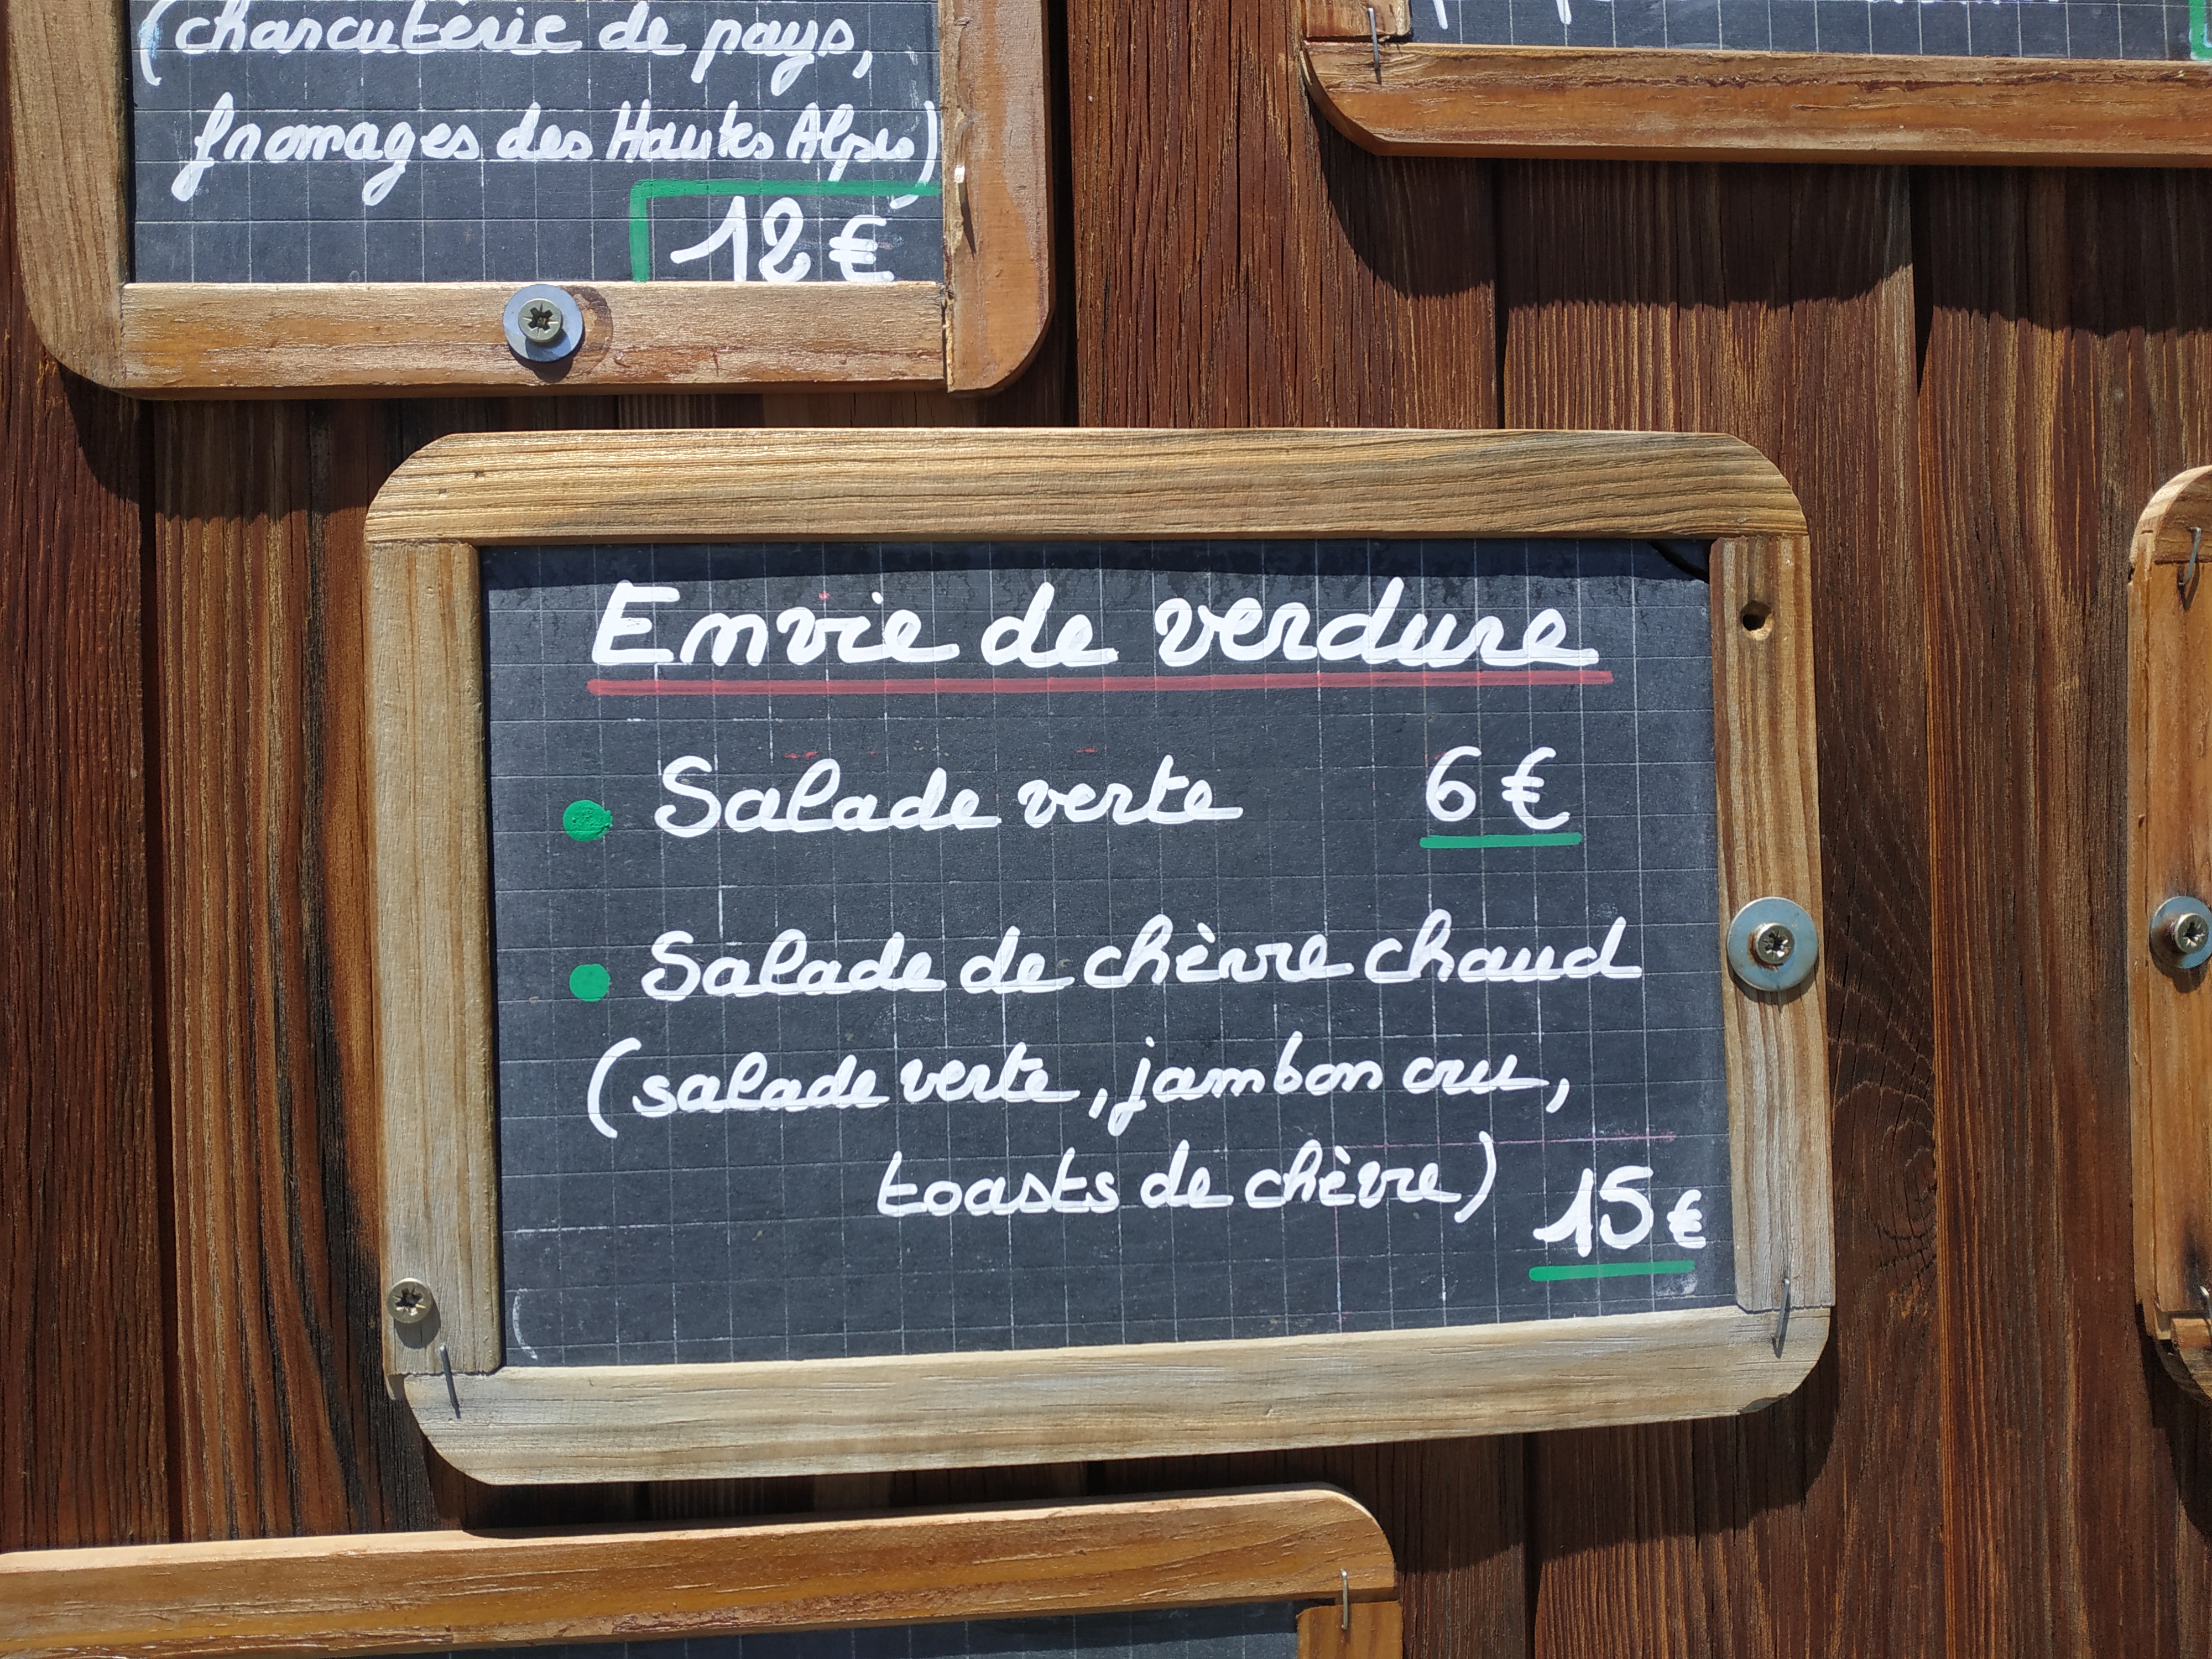 (charcuterie de pays,
fromages des Hautes Alpes)
12 €
Envie de verdure
Salade verte 6 €
Salade de chèvre chaud
(salade verte, jambon cru,
toasts de chèvre) 15 €